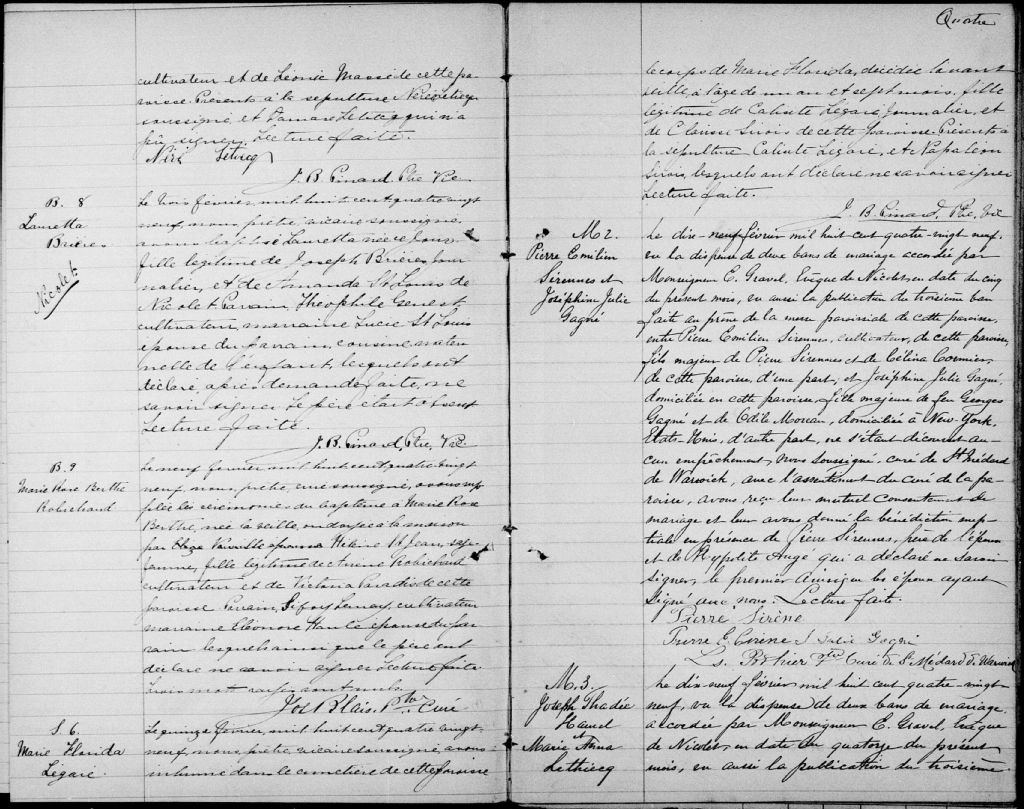 cultivateur et de Léonie Massé de cette pa-
roisse. Présents à la sépulture Néré Létiecq
soussigné, et Damase Letiecq qui n'a
pu signer. Lecture faite.
Néré Létiecq
J. B. Pinard, Ptre Vic
B. 8
Lauretta
Brières
Nicolet
Le trois février, mil huit cent quatre vingt
neuf, nous, prêtre, vicaire soussigné,
avons baptisé Lauretta née ce jour,
fille légitime de Joseph Brières, jour
nalier, et de Amanda St Louis de
Nicolet. Parain Théophile Genest
cultivateur, marraine Lucie St Louis
épouse du parrain, cousine mater
nelle de l'enfant, lesquels ont
déclaré après demande faite, ne
savoir signer. Le père étant absent
Lecture faite.
J. B. Pinard, Ptre, Vic.
B. 9
Marie Rose Berthe
Robichaud
Le neuf février mil huit cent quatre vingt
neuf, nous, prêtre, curé soussigné, avons sup
pléé les cérémonies du baptême à Marie Rose
Berthe, née la veille, ondoyée à la maison
par Hélène St Jean, sage
femme, fille légitime de Robichaud
cultivateur et de Victoria Paradis de cette
paroisse Parain, Lemay, cultivateur
marraine Eléonore épouse du par
rain lesquels ainsi que le père ont
déclaré ne savoir signer Lecture faite
trois mots rayés sont nuls.
Jos. Blais, Ptre Curé
S. 6.
Marie Florida
Légaré
Le quinze février, mil huit cent quatre vingt
neuf, nous, prêtre, vicaire soussigné, avons
inhumé dans le cimetière de cette paroisse
Quatre
le corps de Marie Florida, décédée l'avant
veille, à l'âge de un an et sept mois, fille
légitime de Calixte Légaré, Journalier, et
de Clarisse Sirois de cette paroisse. Présents à
la sépulture Calixte Légaré, et Napoléon
Sirois, lesquels ont déclaré ne savoir signer
Lecture faite.
J. B. Pinard, Ptre, Vic
M 2.
Pierre Emilien
Sirennes et
Joséphine Julie
Gagné
Le dix-neuf février mil huit cent quatre-vingt neuf.
vu la dispense de deux bans de mariage accordée par
Monseigneur E. Gravel, Evêque de Nicolet, en date du cinq
du présent mois, vu aussi la publication du troisième ban
faite au prône de la messe paroissiale de cette paroisse,
entre Pierre Emilien Sirennes, cultivateur, de cette paroisse,
fils majeur de Pierre Sirennes et de Célina Cormier,
de cette paroisse, d'une part; et Joséphine Julie Gagné,
domiciliée en cette paroisse, fille majeure de feu Georges
Gagné et de Odile Moreau, domiciliée à New-York,
Etats-Unis, d'autre part, ne s'étant découvert au-
cun empêchement, nous soussigné, curé de St Médard
de Warwick, avec l'assentiment du curé de la pa-
roisse, avons reçu leur mutuel consentement de
mariage et leur avons donné la bénédiction nup-
tiale en présence de Pierre Sirennes, père de l'époux
et de Hypolite Augé qui a déclaré ne savoir
signer, le premier ainsi que les époux ayant
signé avec nous. Lecture faite.
Pierre Sirène
Pierre E. Cirène J Julie Gagné
Ls. Pothier Ptre Curé de St Médard de Warwick
M. 3.
Joseph Thadée
Hamel
et
Marie Anna
Lethiecq
Le dix-neuf février mil huit cent quatre-vingt
neuf, vu la dispense de deux bans de mariage
accordée par Monseigneur E. Gravel, Evêque
de Nicolet, en date du quatorze du présent
mois, vu aussi la publication du troisième